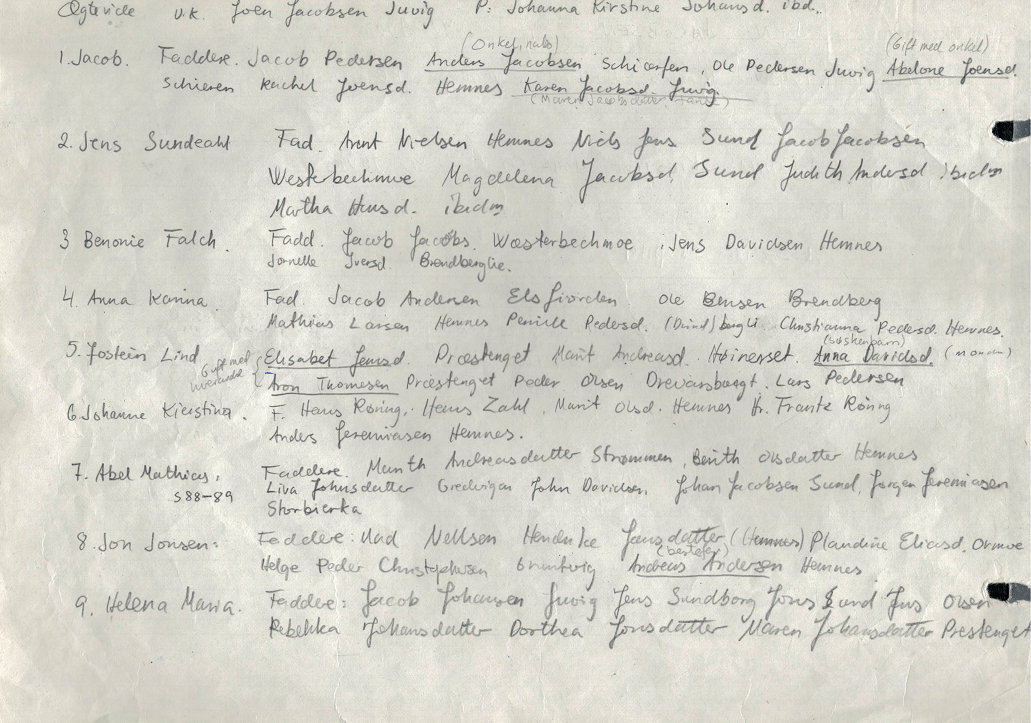 Ogteviede v.k. Joen Jacobsen Juvig P: Johanna Kirstine Johansd. ibd..
(Onkel, nabo) (Gift med onkel)
1. Jacob. Faddere. Jacob Pedersen Anders Jacobsen Schierfen, Ole Pedersen Juvig Abelone Joensd.
Schieren Rachel Joensd. Hemnes Karen Jacobsd. Juvig.
(Maren Jacobsdatter tante)
2. Jens Sundeahl Fad. Arnt Nielsen Hemnes Niels Jens Sund Jacob Jacobsen
Westerbechmoe Magdelena Jacobsd. Sund Judith Andersd ibidm
Martha Hansd. ibidm
3 Benonie Falch. Fadd. Jacob Jacobs. Wæsterbechmoe, Jens Davidsen Hemnes
Jornelle Iversd. Brendberglie.
4. Anna Karina Fad. Jacob Andersen Elsfiorden. Ole Bensen Brendberg
Mathias Larsen Hemnes Pernille Pedersd. bergli Christianna Pedersd. Hemnes.
(søskenbarn)
5. Jostein Lind Elisabet Jensd. Præstenget Marit Andreasd. Høinerset. Anna Davidsd.
Gift med hverandre Aron Thomesen Præstenget Peder Olsen Drevarsbergt. Lars Pedersen
6 Johanne Kierstina. F. Hans Röring, Hans Zahl, Marit Olsd. Hemnes Hr. Frantz Röring
Anders Jeremiasen Hemnes.
7. Abel Mathias: Faddere. Marith Andreasdatter Strømmen, Berith Olsdatter Hemnes
S 88-89 Liva Johnsdatter John Davidsen, Johan Jacobsen Sund, Jørgen Jeremiasen
Storbierka
8. Jon Jonsen: Faddere: Nellsen Hendrike Jonsdatter (Hemnes) Plandine Eliasd. Ormoe
(bestefar)
Helge Peder Christophersen Andreas Andersen Hemnes
9. Helena Maria. Faddere: Jacob Johansen Juvig Jens Sundborg Jons Sund Jens Olsen
Rebekka Johansdatter Dorthea Jonsdatter Maren Johansdatter Prestenget